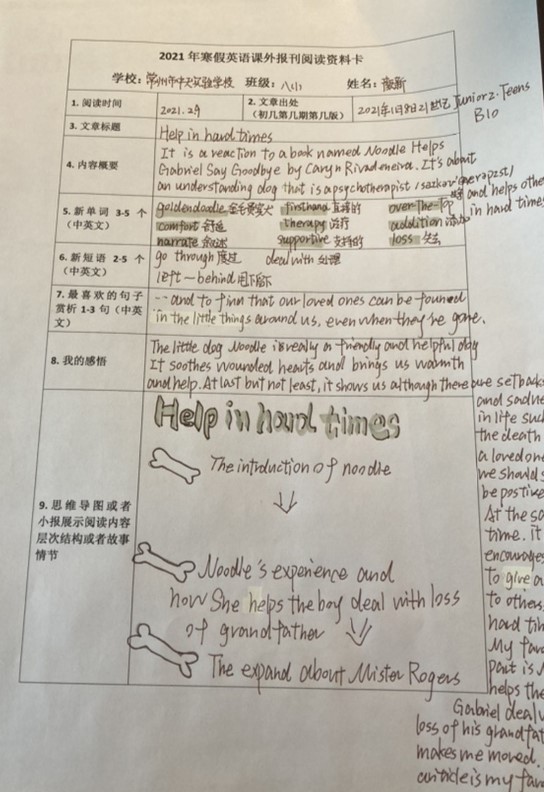 2021 年寒假英语课外报刊阅读资料卡
学校: 常州市中天实验学校 班级: 八(11) 姓名:
1. 阅读时间 2021.2.9 2. 文章出处 2021年1月8日21世纪 Junior 2. Teens
(初几第几期第几版) B10
3. 文章标题 Help in hard times
4. 内容概要 It is a reaction to a book named Noodle Helps
Gabriel Say Goodbye by Caryn Rivadeneira. It's about
an understanding dog that is a psychotherapist and helps other
in hard times
5. 新单词 3-5 个 goldendoodle 金毛贵宾犬 firsthand 直接的 over-the-top
(中英文) comfort 舒适 therapy 治疗 addition 添加
narrate 叙述 supportive 支持的 loss 失去
6. 新短语 2-5 个 go through 度过 deal with 处理
(中英文) left~behind 留下
7. 最喜欢的句子 ...and to finn that our loved ones can be founed
赏析 1-3 句(中英 in the little things around us, even when they're gone.
文)
8. 我的感悟 The little dog Noodle is really a friendly and helpful dog
It soothes wounded hearts and brings us warmth
and help. At last but not least, it shows us although there are setbacks
and sadne
in life such
the death
a loved one
we should
be postive
At the sa
time. it
encourages
to give a
to others
hard tim
My favo
part is N
helps the
Gabriel deal w
loss of his grandfat
makes me moved.
article is my favo
9. 思维导图或者
小报展示阅读内容
层次结构或者故事
情节
Help in hard times
The introduction of noodle
Noodle's experience and
how She helps the boy deal with loss
of grandfather
The expand about Mister Rogers